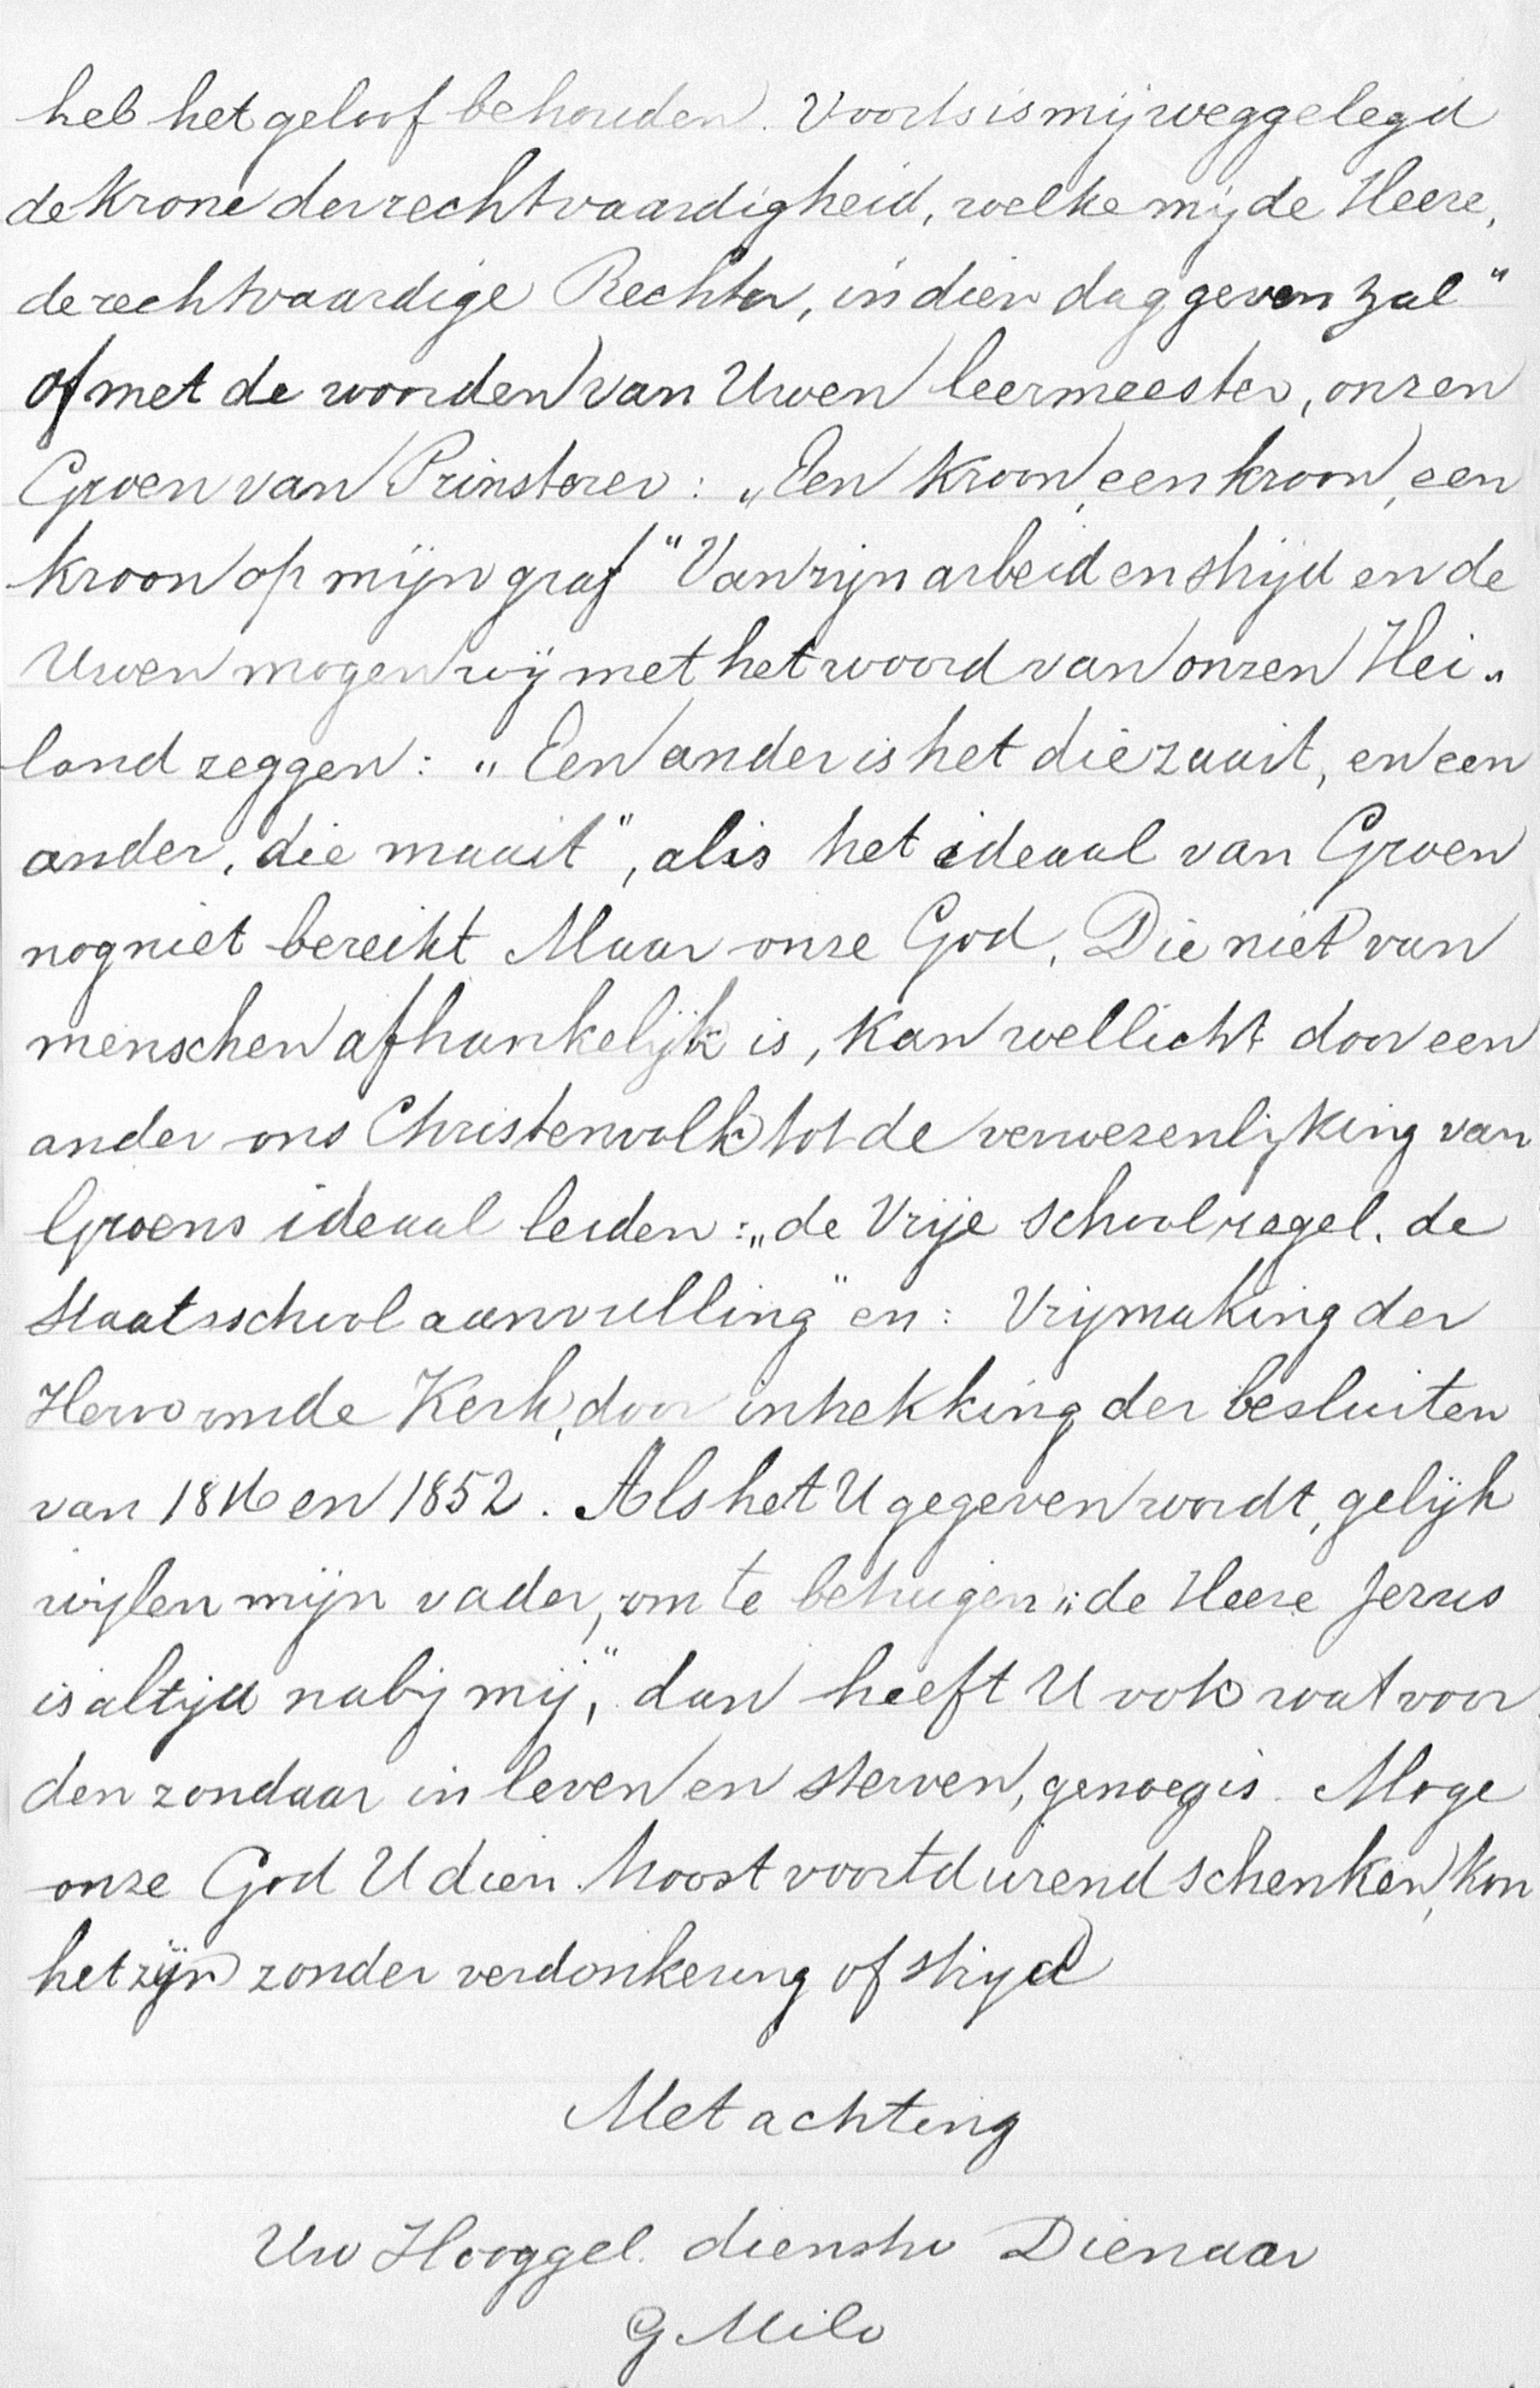 heb het geloof behouden. Voorts is mij weggelegd
de Krone der rechtvaardigheid, welke mij de Heere,
de rechtvaardige Rechter, in dien dag geven zal"
of met de woorden van Uwen leermeester, onzen
Groen van Prinsterer: „Een kroon, een kroon, een
kroon op mijn graf" Van zijn arbeid en strijd en de
Uwen mogen wij met het woord van onzen Hei„
land zeggen: „Een ander is het die zaait, en een
ander, die maait", al is het ideaal van Groen
nog niet bereikt Maar onze God, Die niet van
menschen afhankelijk is, kan wellicht door een
ander ons Christenvolk tot de verwezenlijking van
Groens ideaal leiden: „de Vrije school regel, de
Staatsschool aanvulling" en: Vrijmaking der
Hervormde Kerk, door intrekking der besluiten
van 1816 en 1852. Als het U gegeven wordt, gelijk
wijlen mijn vader, om te betuigen „: de Heere Jezus
is altijd nabij mij," dan heeft U ook wat voor
den zondaar in leven en sterven, genoeg is. Moge
onze God U dien troost voortdurend schenken, kon
het zijn zonder verdonkering of strijd
Met achting
Uw Hooggel. dienstv Dienaar
G Milo